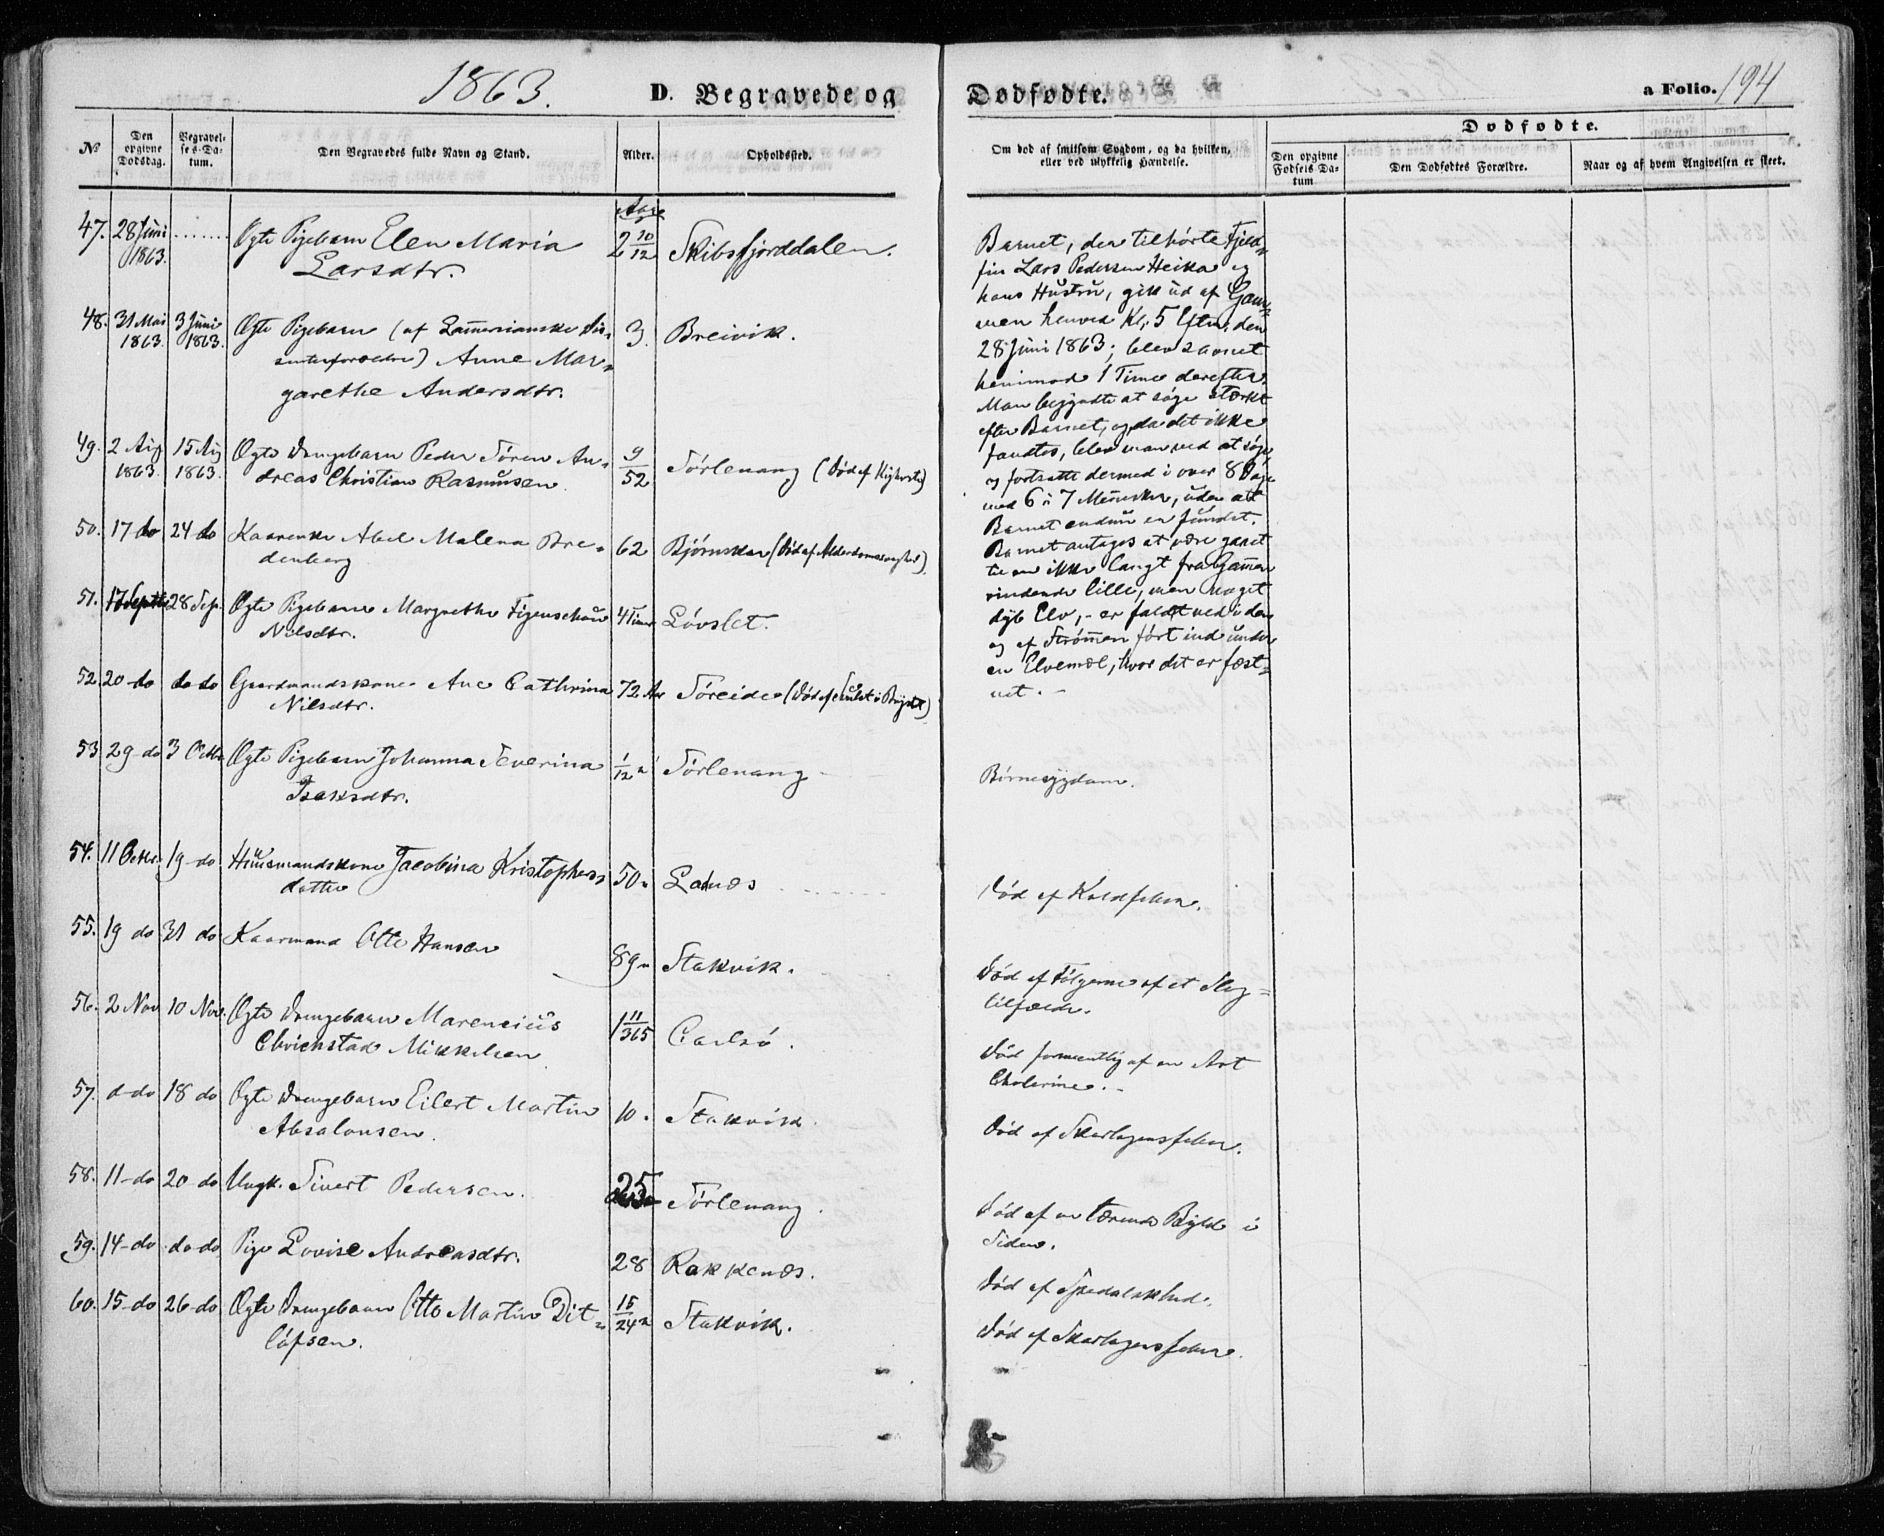 1863.
D. Begravede og
Dødfødte.
a Folio. 194
Dødfødte.
No
Den opgivne Dødsdag.
Begravelses-Datum.
Den Begravedes fulde Navn og Stand.
Alder.
Opholdssted.
Om død af smitsom Sygdom, og da hvilken, eller ved ulykkelig Hændelse.
Den opgivne Fødsels Datum
Den Dødfødtes Forældre.
Naar og af hvem Angivelsen er skeet.
47. 28 Juni 1863. Ægte Pigebarn Elen Maria
Larsdtr. 2 10/12 Skibsfjorddalen.
48. 31 Mai 1863. 3 Juni 1863. Ægte Pigebarn (af Lammersianske Dis-
senterforældre) Anne Mar-
garethe Andersdtr. 3 Breivik.
49. 2 Aug 1863. 15 Aug 1863. Ægte Drengebarn Peder Sören An-
dreas Christian Rasmusen 9/52 Sörlenang (Död af Kighoste)
50. 17 do 24 do Kaarenke Abel Malena Bre-
denberg 62 Björnskar (Död af Alderdomssvaghed)
51. 17 Septbr 28 Sep. Ægte Pigebarn Margrethe Figenschou
Nilsdtr. 4 Timer Lövslet.
52. 20 do do do Gaardmandskone Ane Cathrina
Nilsdtr. 72 Aar Söreide (Död af Svulst i Brystet)
53 29 do 3 Octbr Ægte Pigebarn Johanna Severina
Isaksdtr. 1/12 " Sörlenang
54. 11 Octbr. 19 do Huusmandskone Jacobina Kristophers-
datter 50 " Lanæs
55. 19 do 31 do Kaarmand Otte Hansen 89 " Stakvik.
56. 2 Nov 10 Nov. Ægte Drengebarn Marencius
Chrichstad Mikkelsen 1 11/365 Carlsö.
57. d-do 18 do Ægte Drengebarn Eilert Martin
Absalonsen. 10 " Stakvik.
58. 11 do 20 do Ungk. Sivert Pedersen. 25 Sörlenang.
59. 14 do do do Pige Lovise Andreasdtr. 28 Rakkenæs.
60. 15 do 26 do Ægte Drengebarn Otto Martin Dit-
löfsen. 15/24 " Stakvik.
Barnet, der tilhörte Fjeld-
fin Lars Pedersen Heika og
hans Hustru, gik ud af Gam-
men henved Kl. 5 Eftm. den
28 Juni 1863; blev savnet
henimod 1 Time derefter.
Man begyndte at söge stærkt
efter Barnet, og da det ikke
fandtes, blev man ved at söge,
og fortsatte dermed i over 8 Dage
med 6 à 7 Mennsker, uden at
Barnet endnu er fundet.
Barnet antages at være gaaet
til en ikke langt fra Gammen
rindende lille, men meget
dyb Elv, - er faldt ned i den
og af Strömmen fört ind under
en Elvemæl, hvor det er fæst-
net. -
Börnesygdom.
Död af Koldfeber.
Död af Fölgerne af et Slag-
tilfælde.
Död formentlig af en Art
Cholerine. -
Död af Skarlagensfeber.
Död af en tærende Byld i
Siden.
Död af Spedalskhed.
Död af Skarlagensfeber.